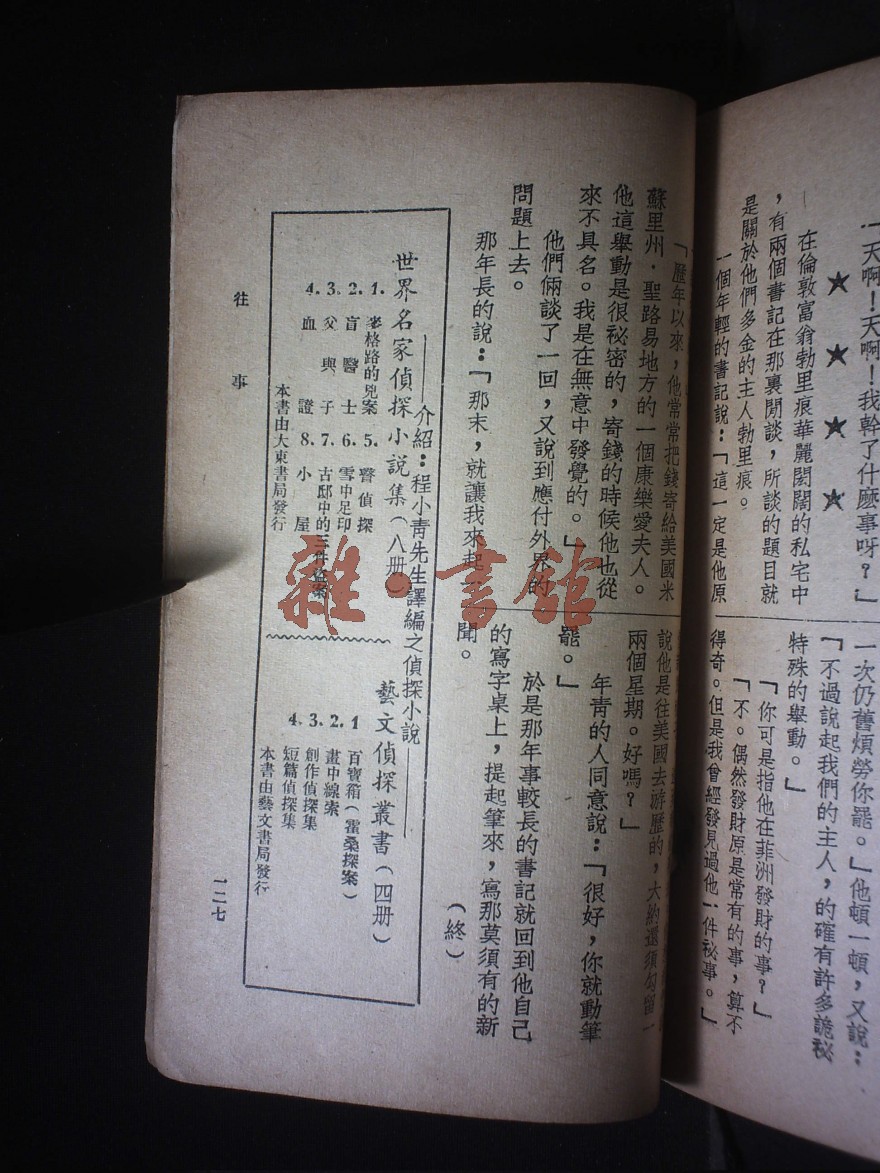 「天啊！天啊！我幹了什麽事呀？」
★ ★ ★ ★
在倫敦富翁勃里痕華麗閎闊的私宅中
，有兩個書記在那裏閒談，所談的題目就
是關於他們多金的主人勃里痕。
一個年輕的書記說：「這一定是他原
一次仍舊煩勞你罷。」他頓一頓，又說：
「不過說起我們的主人，的確有許多詭祕
特殊的舉動。」
「你可是指他在菲洲發財的事？」
「不。偶然發財原是常有的事，算不
得奇。但是我曾經發見過他一件祕事。」
「歷年以來，他常常把錢寄給美國米
蘇里州．聖路易地方的一個康樂愛夫人。
他這舉動是很祕密的，寄錢的時候他也從
來不具名。我是在無意中發覺的。」
他們倆談了一回，又說到應付外界的
問題上去。
那年長的說：「那末，就讓我來起
說他是往美國去游歷的，大約還須勾留一
兩個星期。好嗎？」
年青的人同意說：「很好，你就動筆
罷。」
於是那年事較長的書記就回到他自己
的寫字桌上，提起筆來，寫那莫須有的新
聞。
（終）
——介紹：程小青先生譯編之偵探小說——
世界名家偵探小說集（八册）
1. 麥格路的兇案 5. 醫偵探
2. 盲醫士 6. 雪中足印
3. 父與子 7. 古邸中的三件盜案
4. 血證 8. 小屋
本書由大東書局發行
藝文偵探叢書（四册）
1 百寶箱（霍桑探案）
2. 畫中線索
3. 創作偵探集
4. 短篇偵探集
本書由藝文書局發行
往事
一二七
雜·書館